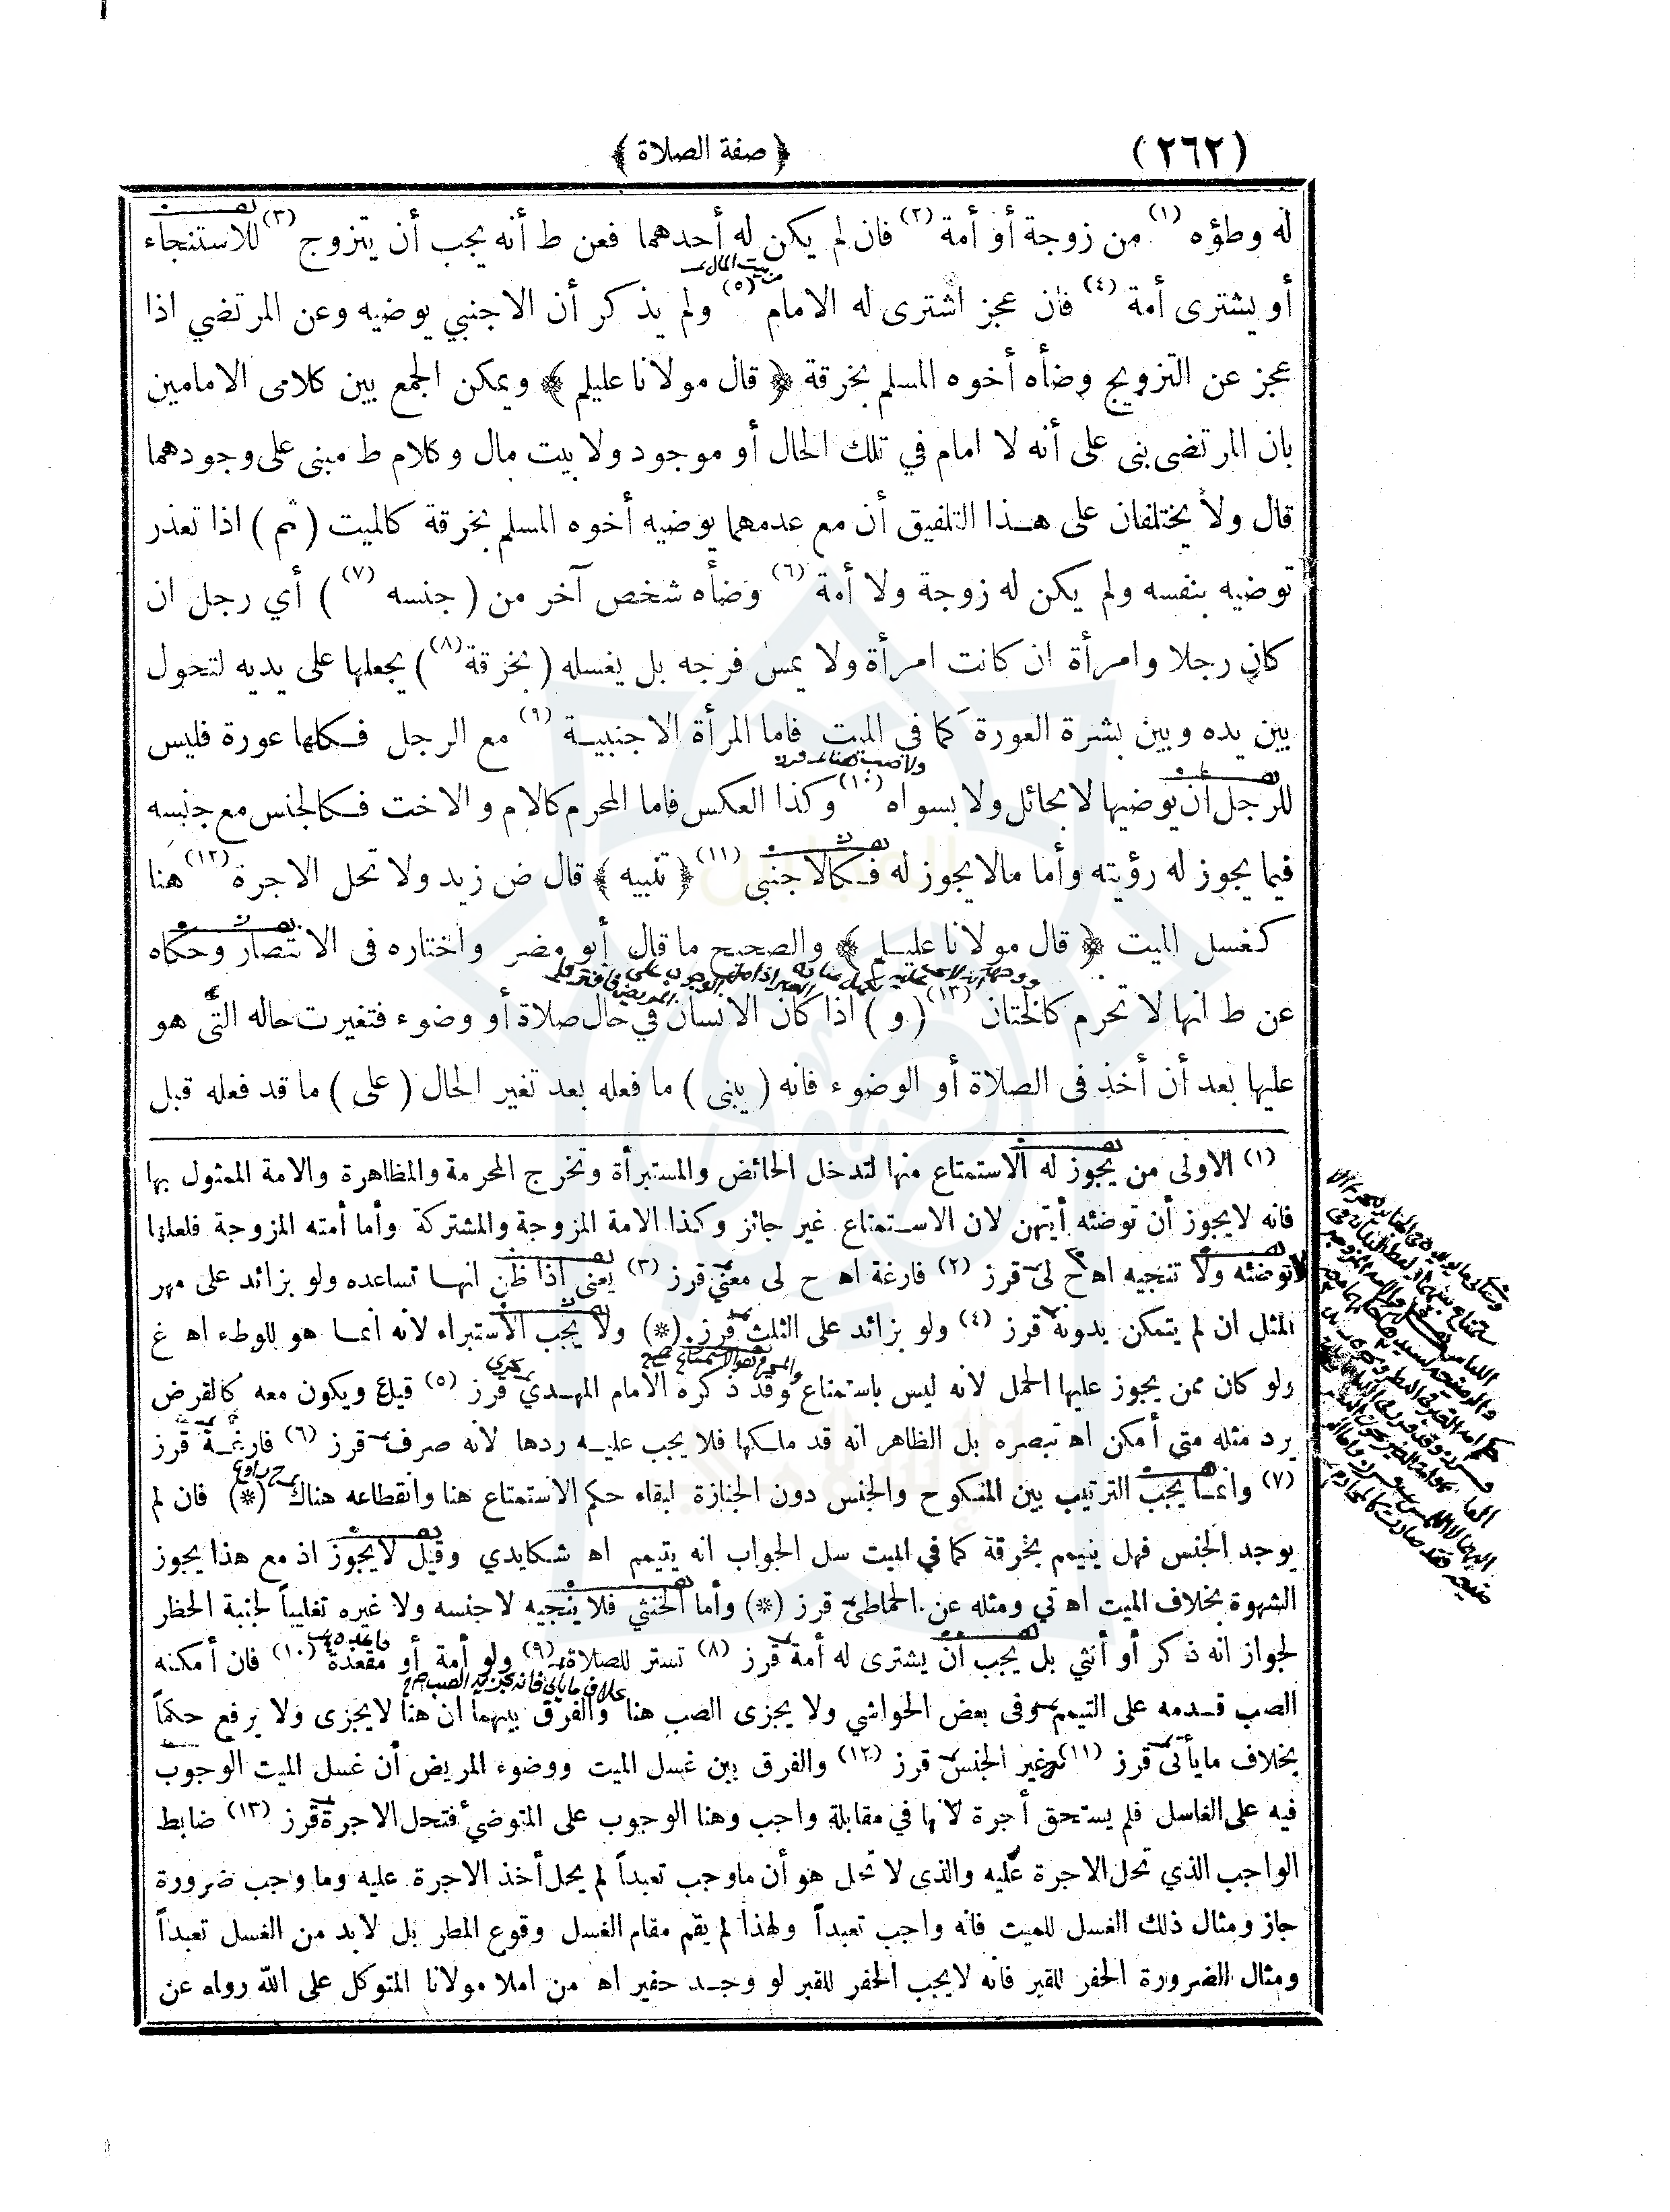 (٢٦٢)
﴿ صفة الصلاة ﴾
له وطؤه (١) من زوجة أو أمة (٢) فان لم يكن له أحدهما فعن ط أنه يجب أن يتزوج (٣) للاستنجاء
أو يشترى أمة (٤) فان عجز اشترى له الامام (٥) ولم يذكر أن الاجنبي يوضيه وعن المرتضي اذا
من بيت المال
عجز عن التزويج وضأه أخوه المسلم بخرقة ﴿ قال مولانا عليلم ﴾ ويمكن الجمع بين كلامى الامامين
بان المرتضى بنى على أنه لا امام في تلك الحال أو موجود ولا بيت مال وكلام ط مبنى على وجودهما
قال ولا يختلفان على هذا التلفيق أن مع عدمهما يوضيه أخوه المسلم بخرقة كالميت ( ثم ) اذا تعذر
توضيه بنفسه ولم يكن له زوجة ولا أمة (٦) وضأه شخص آخر من ( جنسه (٧) ) أي رجل ان
كان رجلا وامرأة ان كانت امرأة ولا يمس فرجه بل يغسله ( بخرقة (٨) ) يجعلها على يديه لتحول
بين يده وبين بشرة العورة كما في الميت فاما المرأة الاجنبية (٩) مع الرجل فكلها عورة فليس
للرجل ان يوضيها لا بحائل ولا بسواه (١٠) وكذا العكس فاما المحرم كالام والاخت فكالجنس مع جنسه
فيما يجوز له رؤيته وأما مالا يجوز له فكالاجنبى (١١) ﴿ تنبيه ﴾ قال ض زيد ولا تحل الاجرة (١٢) هنا
كغسل الميت ﴿ قال مولانا عليلم ﴾ والصحيح ما قال أبو مضر واختاره فى الانتصار وحكاه
عن ط انها لا تحرم كالختان (١٣) ( و ) اذا كان الانسان في حال صلاة أو وضوء فتغيرت حاله التى هو
عليها بعد أن أخذ فى الصلاة أو الوضوء فانه ( يبنى ) ما فعله بعد تغير الحال ( على ) ما قد فعله قبل
(١) الاولى من يجوز له الاستمتاع منها لتدخل الحائض والمستبرأة وتخرج المحرمة والمظاهرة والامة الممثول بها
فانه لايجوز أن توضئه أيتهن لان الاستمتاع غير جائز وكذا الامة المزوجة والمشتركة وأما أمته المزوجة فلعلها
توضئه ولا تنجيه اه ح لى قرز (٢) فارغة اه ح لى معنى قرز (٣) يعنى اذا ظن انها تساعده ولو بزائد على مهر
المثل ان لم يتمكن بدونه قرز (٤) ولو بزائد على الثلث قرز (*) ولا يجب الاستبراء لانه انما هو للوطء اه غ
ولو كان ممن يجوز عليها الحمل لانه ليس باستمتاع وقد ذكره الامام المهدي قرز (٥) قيل ع ويكون معه كالقرض
يرد مثله متى أمكن اه تبصره بل الظاهر انه قد ملكها فلا يجب عليه ردها لانه صرف قرز (٦) فارغة قرز
(٧) وانما يجب الترتيب بين المنكوح والجنس دون الجنازة لبقاء حكم الاستمتاع هنا وانقطاعه هناك (*) فان لم
يوجد الجنس فهل ييمم بخرقة كما في الميت سل الجواب انه يتيمم اه شكايدي وقيل لايجوز اذ مع هذا يجوز
الشهوة بخلاف الميت اه تي ومثله عن الحماطي قرز (*) وأما الخنثي فلا ينجيه لاجنسه ولا غيره تغليباً لجنبة الحظر
لجواز انه ذكر أو أنثي بل يجب أن يشترى له أمة قرز (٨) تستر للصلاة (٩) ولو أمة أو مقعدة (١٠) فان أمكنه
الصب قدمه على التيمم وفى بعض الحواشي ولا يجزى الصب هنا والفرق بينهما ان هنا لايجزى ولا يرفع حكماً
بخلاف مايأتى قرز (١١) غير الجنس قرز (١٢) والفرق بين غسل الميت ووضوء المريض أن غسل الميت الوجوب
فيه على الغاسل فلم يستحق أجرة لانها في مقابلة واجب وهنا الوجوب على المتوضئ فتحل الاجرة قرز (١٣) ضابط
الواجب الذي تحل الاجرة عليه والذى لا تحل هو أن ماوجب تعبداً لم يحل أخذ الاجرة عليه وما وجب ضرورة
جاز ومثال ذلك الغسل للميت فانه واجب تعبداً ولهذا لم يقم مقام الغسل وقوع المطر بل لابد من الغسل تعبداً
ومثال الضرورة الحفر للقبر فانه لايجب الحفر للقبر لو وجد حفير اه من املا مولانا المتوكل على الله رواه عن